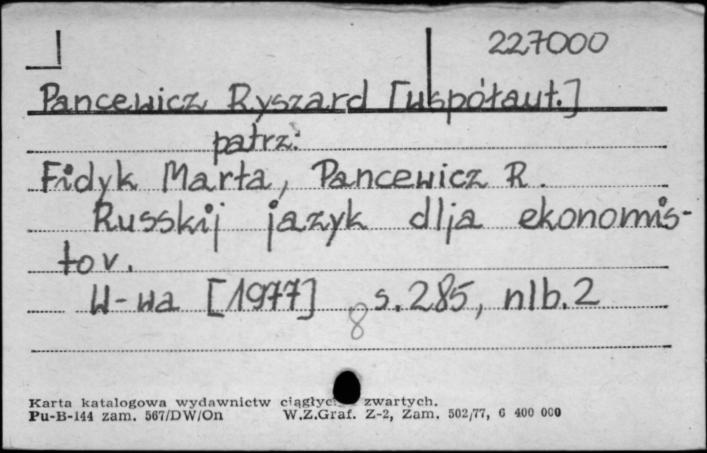 227000
Pancewicz Ryszard [współaut.]
patrz:
Fidyk Marta, Pancewicz R.
Russkij jazyk dlja ekonomis-
tov.
W-wa [1977] s.285, nlb.2
8
Karta katalogowa wydawnictw zwartych.
Pu-B-144 zam. 567/DW/On W.Z.Graf. Z-2, Zam. 502/77, 6 400 000